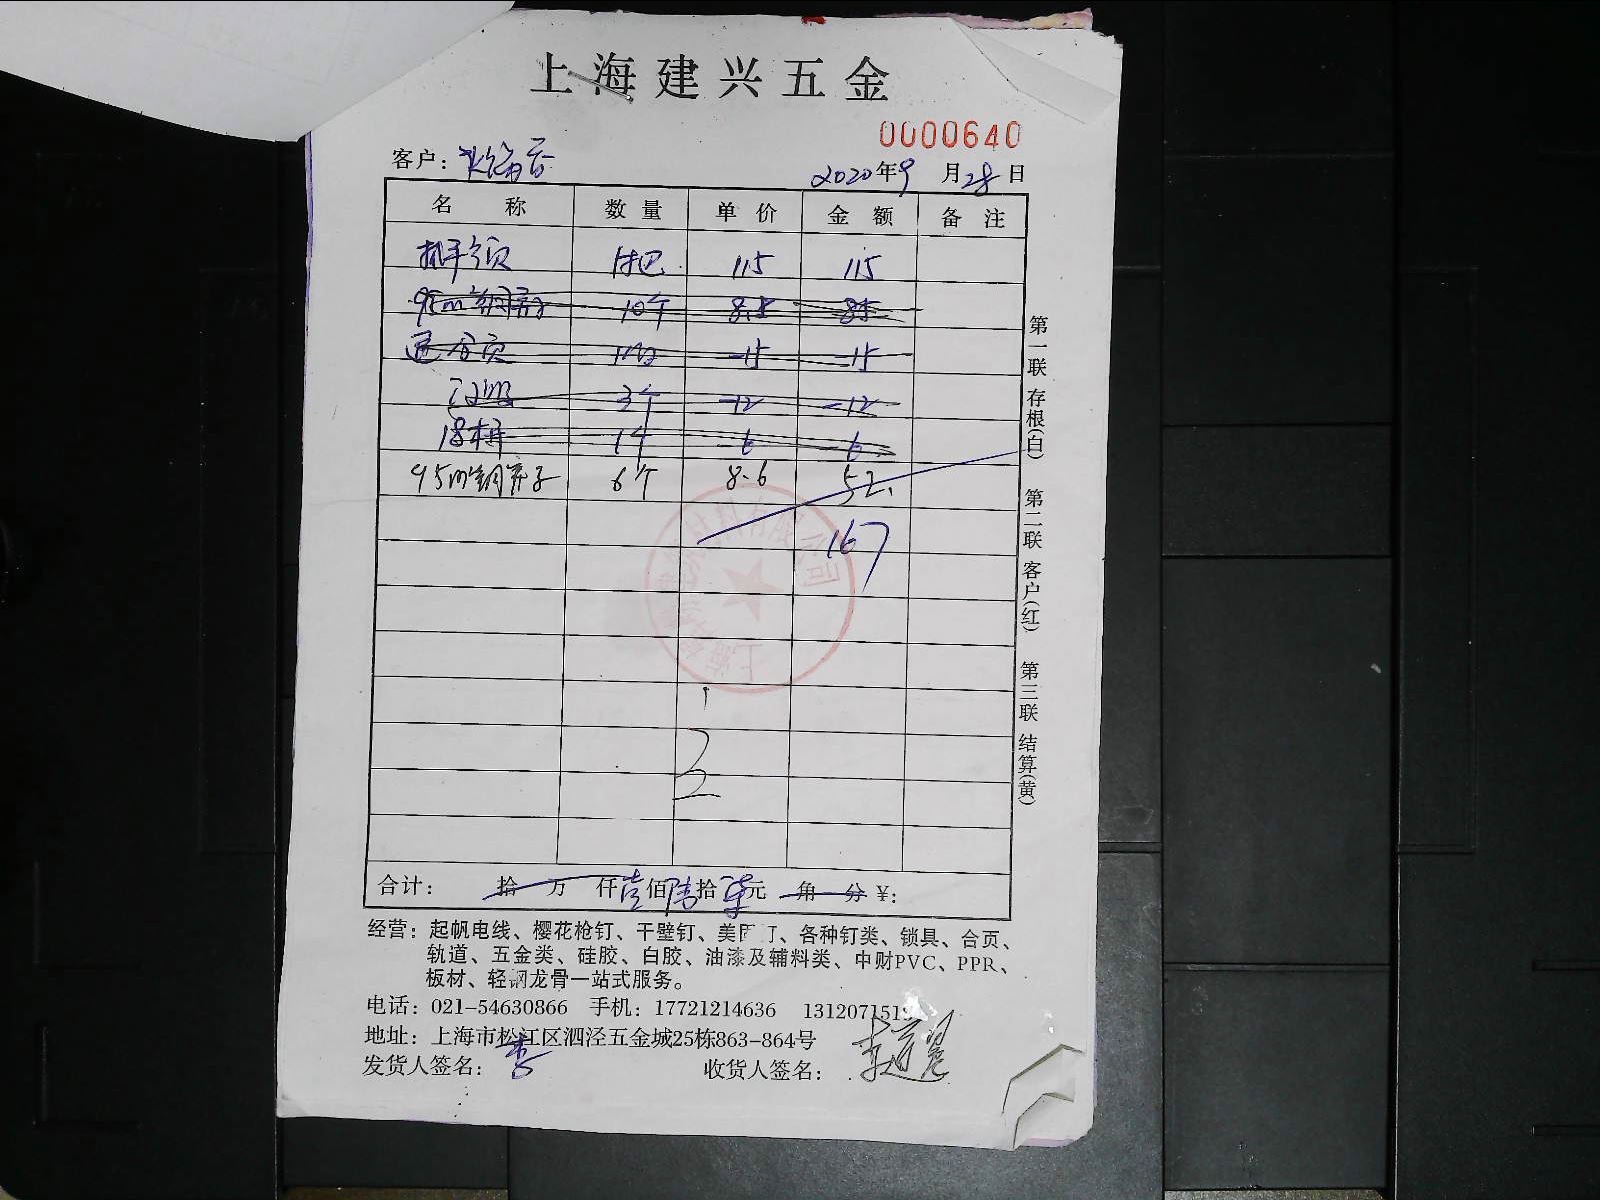 上海建兴五金
0000640
客户：
2020年9月28日
名 称 数量 单价 金额 备注
1把 115 115
10个 8.5 85
-15 -15
3个 -12 -12
1个 6 6
6个 8.6 52
167
合计： 拾 万 仟壹佰陆拾柒元 角 分 ¥:
经营：起帆电线、樱花枪钉、干壁钉、美固钉、各种钉类、锁具、合页、
轨道、五金类、硅胶、白胶、油漆及辅料类、中财PVC、PPR、
板材、轻钢龙骨一站式服务。
电话：021-54630866 手机：17721214636 131207151
地址：上海市松江区泗泾五金城25栋863-864号
发货人签名：李 收货人签名：
第一联 存根(白) 第二联 客户(红) 第三联 结算(黄)